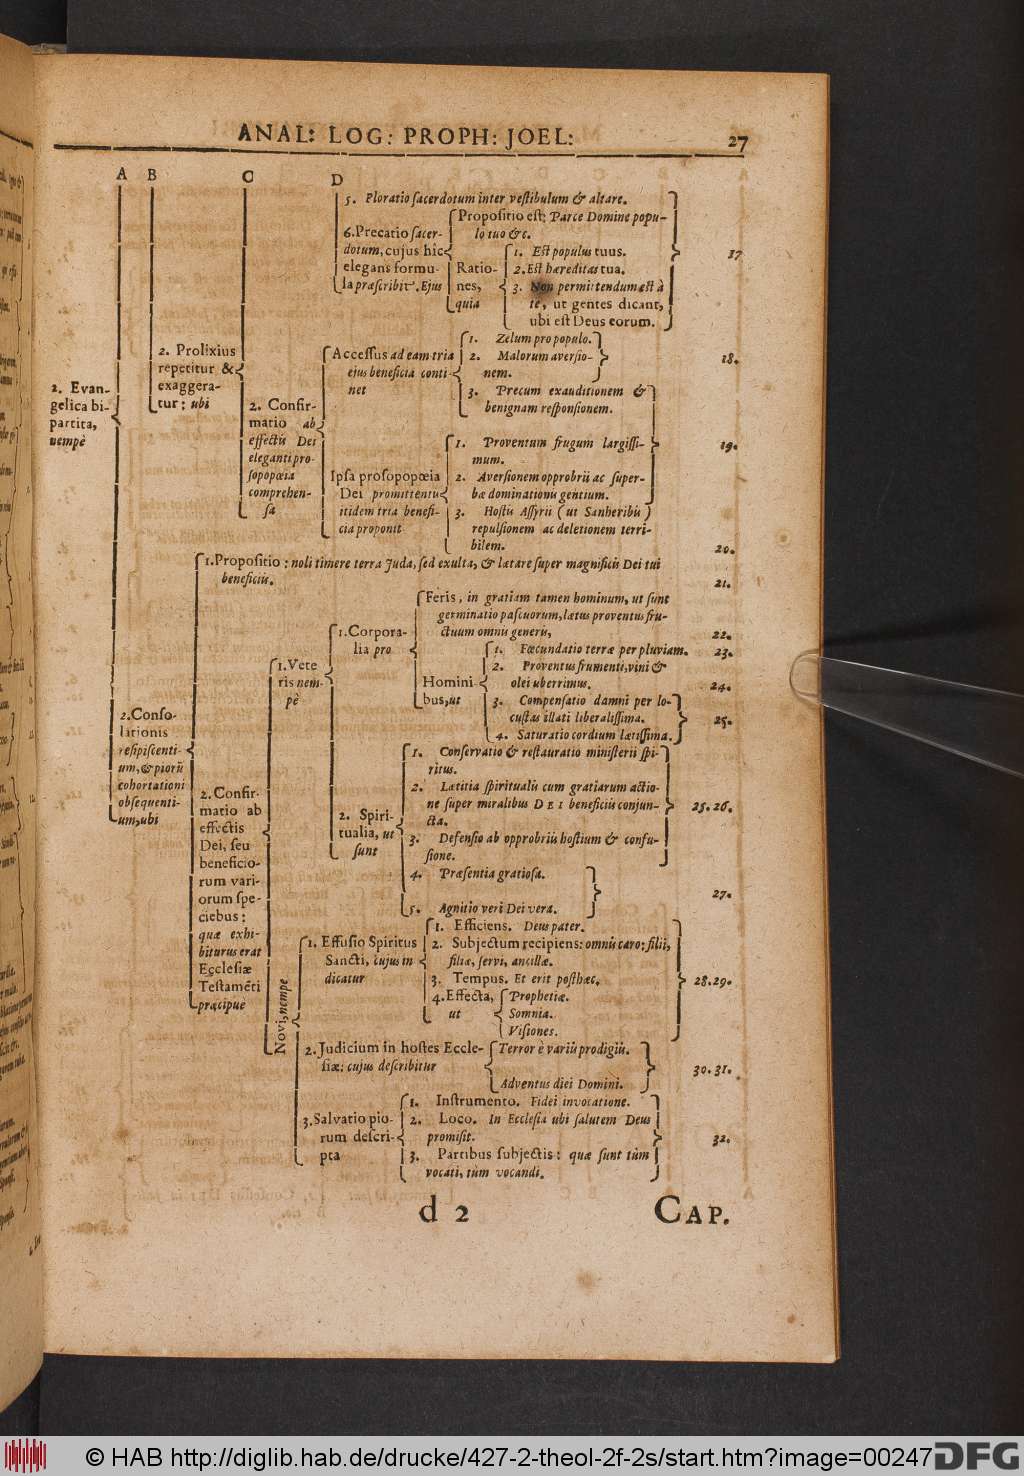 ANAL: LOG: PROPH: JOEL:
27
A B C D
5. Ploratio sacerdotum inter vestibulum & altare.
6. Precatio sacer-
dotum, cujus hic
elegans formu-
la præscribit. Ejus
Propositio est: Parce Domine popu-
lo tuo &c.
Ratio-
nes,
quia
1. Est populus tuus.
2. Est hæreditas tua.
3. Non permittendum est à
te, ut gentes dicant,
ubi est Deus eorum.
17
2. Evan-
gelica bi-
partita,
nempè
2. Prolixius
repetitur &
exaggera-
tur: ubi
2. Confir-
matio ab
effectu Dei
eleganti pro-
sopopœia
comprehen-
sa
Accessus ad eam tria
ejus beneficia conti-
net
1. Zelum pro populo.
2. Malorum aversio-
nem.
18.
3. Precum exauditionem &
benignam responsionem.
Ipsa prosopopœia
Dei promittentis
itidem tria benefi-
cia proponit
1. Proventum frugum largissi-
mum.
2. Aversionem opprobrii ac super-
bæ dominationis gentium.
19.
3. Hostis Assyrii (ut Sanheribis)
repulsionem ac deletionem terri-
bilem.
20.
2. Conso-
lationis
resipiscenti-
um, & piorū
cohortationi
obsequenti-
um, ubi
1. Propositio: noli timere terra Juda, sed exulta, & lætare super magnificis Dei tui
beneficiis.
21.
2. Confir-
matio ab
effectis
Dei, seu
beneficio-
rum vari-
orum spe-
ciebus:
quæ exhi-
biturus erat
Ecclesiæ
Testamēti
præcipuè
1. Vete
ris nem-
pè
1. Corpora-
lia pro
Feris, in gratiam tamen hominum, ut sunt
germinatio pascuorum, lætus proventus fru-
ctuum omnis generis,
22.
Homini-
bus, ut
1. Fœcundatio terræ per pluviam.
23.
2. Proventus frumenti, vini &
olei uberrimus.
24.
3. Compensatio damni per lo-
custas illati liberalissima.
4. Saturatio cordium lætissima.
25.
2. Spiri-
tualia, ut
sunt
1. Conservatio & restauratio ministerii spi-
ritus.
2. Lætitia spiritualis cum gratiarum actio-
ne super miralibus DEI beneficiis conjun-
cta.
3. Defensio ab opprobriis hostium & confu-
sione.
25. 26.
4. Præsentia gratiosa.
5. Agnitio veri Dei vera.
27.
Novi, nempe
1. Effusio Spiritus
Sancti, cujus in
dicatur
1. Efficiens. Deus pater.
2. Subjectum recipiens: omnis caro: filii,
filiæ, servi, ancillæ.
3. Tempus. Et erit posthæc.
4. Effecta,
ut
Prophetiæ.
Somnia.
Visiones.
28. 29.
2. Judicium in hostes Eccle-
siæ: cujus describitur
Terror è variis prodigiis.
Adventus diei Domini.
30. 31.
3. Salvatio pio-
rum descri-
pta
1. Instrumento. Fidei invocatione.
2. Loco. In Ecclesia ubi salutem Deus
promisit.
3. Partibus subjectis: quæ sunt tùm
vocati, tùm vocandi.
32.
d 2
CAP.
© HAB http://diglib.hab.de/drucke/427-2-theol-2f-2s/start.htm?image=00247
DFG